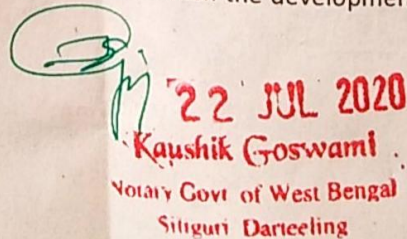 the development
22 JUL 2020
Kaushik Goswami
Notary Govt of West Bengal
Siliguri Darjeeling